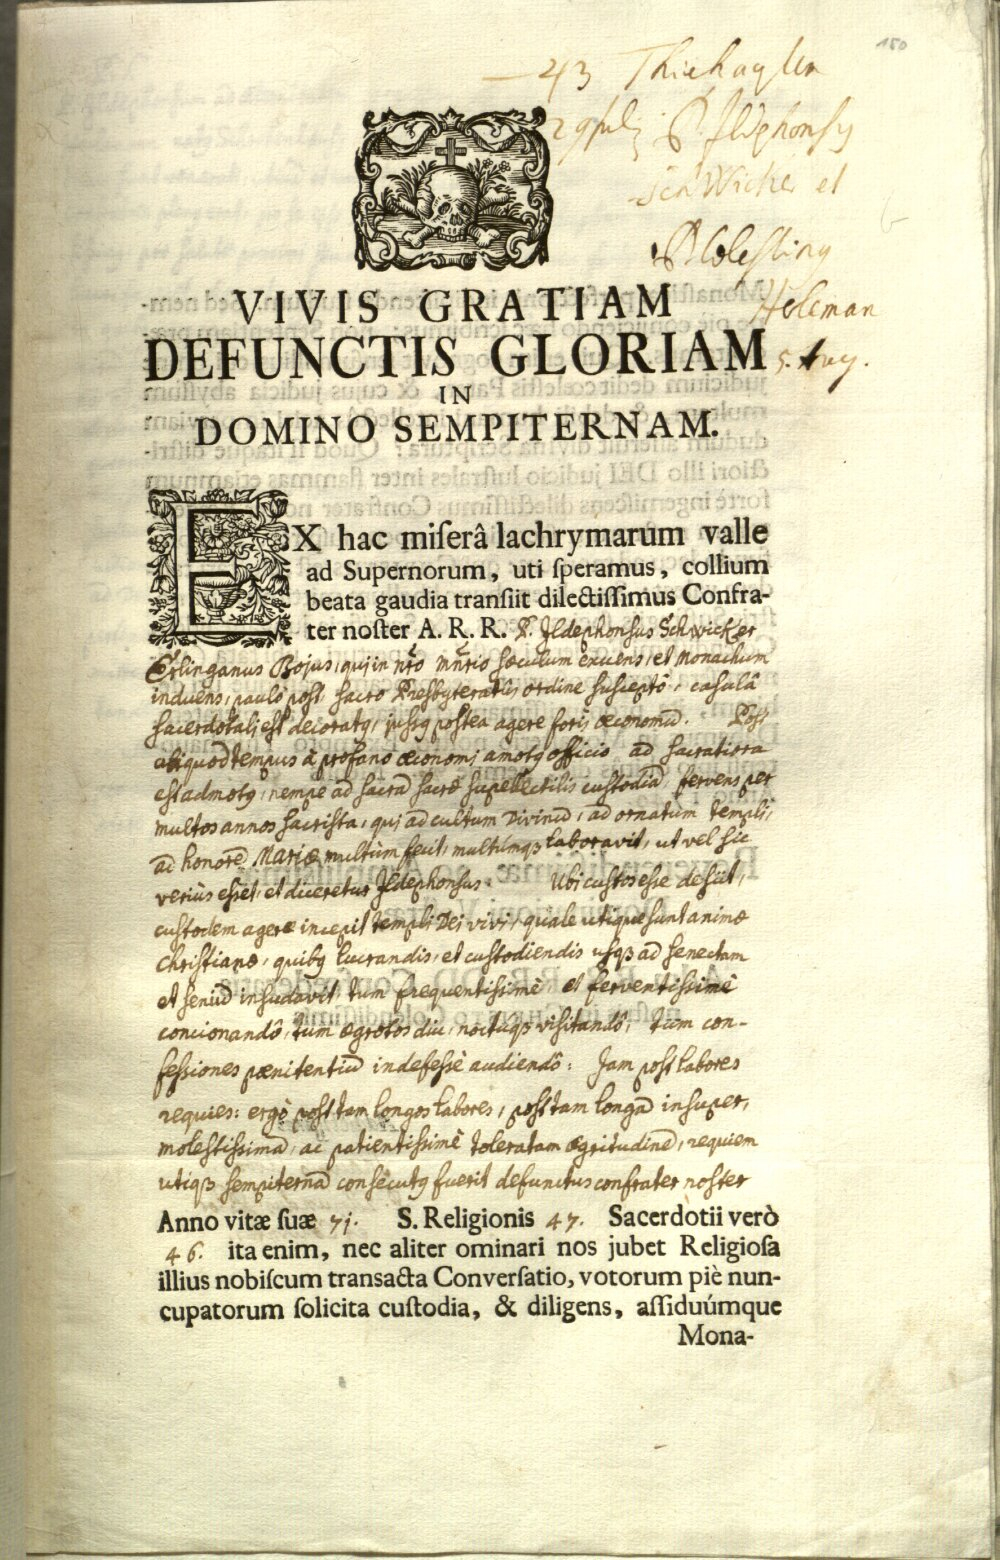 150
43 Thierhaupten
29 Julij P. Ildephonsus
Schwicker et
P. Cölestinus
Heleman
5. Aug.
VIVIS GRATIAM
DEFUNCTIS GLORIAM
IN
DOMINO SEMPITERNAM.
EX hac miserâ lachrymarum valle
ad Supernorum, uti speramus, collium
beata gaudia transiit dilectissimus Confra-
ter noster A. R. R. P. Ildephonsus Schwicker
Erlinganus Bojus, qui in nro mnrio sæculum exuens, et Monachum
induens, paulò post sacro Presbyteratûs ordine susceptô, casulâ
sacerdotali est decoratq, jussq postea agere foris œconomũ. Post
aliquod tempus à profano œconomi amotq officio ad sacratiora
est admotq, nempe ad sacrã sacræ supellectilis custodiã, fervens per
multos annos sacrista, qui ad cultum Divinũ, ad ornatum templi,
ad honorẽ Mariæ multùm fecit, multúmqꝫ laboravit, ut vel sic
veriùs esset, et diceretur Ildephonsus. Ubi custos esse desiit,
custodem agere incepit templi Dei vivi, quale utique sunt animæ
Christianæ, quibq lucrandis, et custodiendis usqꝫ ad senectam
et seniũ insudavit, tum frequentissimè et ferventissimè
concionandô, tum ægrotos diu, noctúqꝫ visitandô, tum con-
fessiones pænitentiũ indefessè audiendô: Jam post labores
requies: ergò post tam longos labores, post tam longã insuper,
molestissimã, ac patientissimè toleratam ægritudinẽ, requiem
utiqꝫ sempiternã consecutq fuerit defunctus confrater noster
Anno vitæ suæ 71. S. Religionis 47. Sacerdotii verò
46. ita enim, nec aliter ominari nos jubet Religiosa
illius nobiscum transacta Conversatio, votorum piè nun-
cupatorum solicita custodia, & diligens, assiduúmque
Mona-